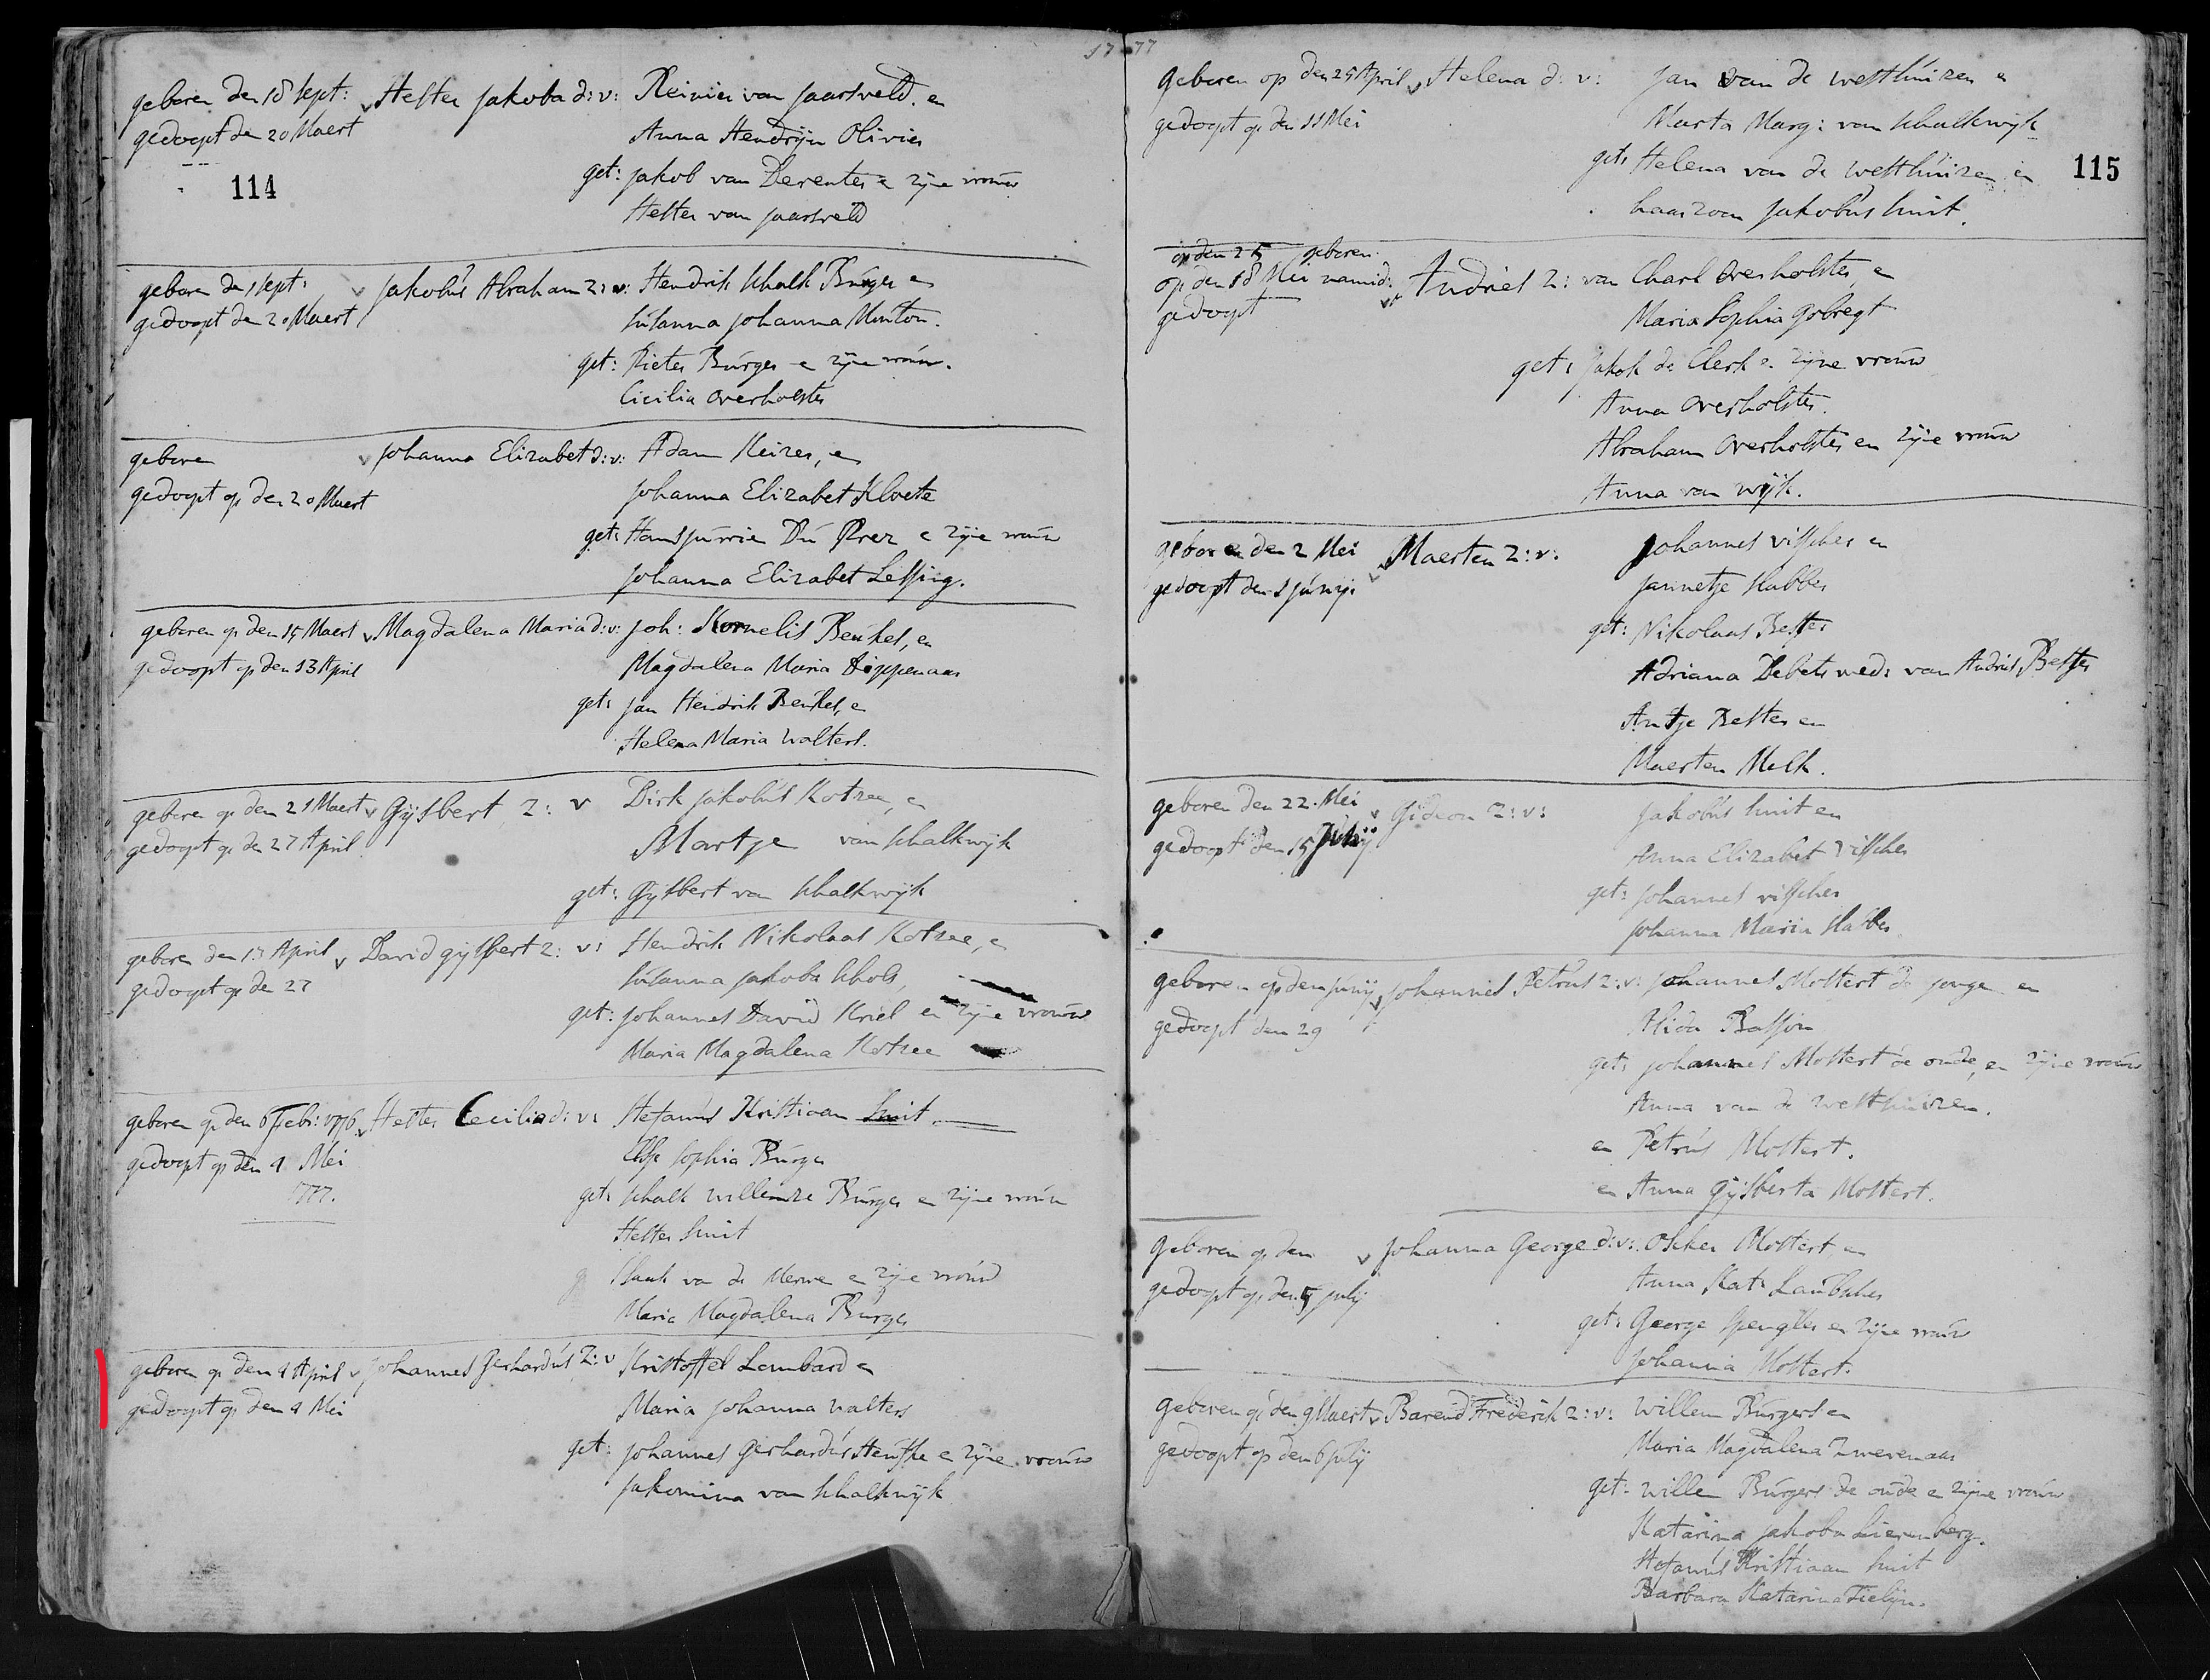 17 77
geboren den 18 Sept: v Hester Jakoba d: v: Reinier van Jaarsveld. en
gedoopt den 20 Maert Anna Hendrijn Olivier
114
get: Jakob van Deventer e zijne vrouw
Hester van Jaarsveld
geboren den 1 Sept: v Jakobus Abraham Z: v: Hendrik Schalk Burger en
gedoopt den 20 Maert Susanna Johanna
get: Pieter Burger e zijne vrouw.
Cicilia Overholster
geboren v Johanna Elizabet d: v: Adam Keizer, en
gedoopt op den 20 Maert Johanna Elizabet Kloete
get: Hansjurrie Du Prez e zijne vrouw
Johanna Elizabet Lessing.
geboren op den 15 Maert v Magdalena Maria d: v: Joh: Kornelis Beukes, en
gedoopt op den 13 April Magdalena Maria Dippenaar
get: Jan Hendrik Beukes, e
Helena Maria Walters.
geboren op den 21 Maert v Gijsbert Z: v Dirk Jakobus Kotzee, en
gedoopt op den 27 April Martje van Schalkwijk
get: Gijsbert van Schalkwijk
geboren den 13 April v David Gijsbert Z: v: Hendrik Nikolaas Kotzee, e
gedoopt op den 27 Susanna Jakoba Schols,
get: Johannes David Kriel en zijne vrouw
Maria Magdalena Kotzee
geboren op den 6 Febr: 1776 v Hester Cecilia d: v: Stefanus Kristiaan Smit.
gedoopt op den 4 Mei Elsje Sophia Burger
1777.
get: Schalk Willemze Burger e zijne vrouw
Hester Smit
van de Merwe e zijne vrouw
Maria Magdalena Burger
geboren op den 4 April v Johannes Gerhardus Z: v Kristoffel Lombard en
gedoopt op den 4 Mei Maria Johanna Walters
get: Johannes Gerhardus e zijne vrouw
Jakomina van Schalkwijk
geboren op den 25 April v Helena d: v: Jan van de Westhuizen en
gedoopt op den 11 Mei Marta Marg: van Schalkwijk
get: Helena van de Westhuizen en
115
haar zoon Jakobus Smit.
op den 25 geboren
op den 18 Mei namid: v Andries Z: van Charl Overholster, e
gedoopt Maria Sophia Gobregt
get: Jakob de Clerk e zijne vrouw
Anna Overholster.
Abraham Overholster en zijne vrouw
Anna van Wijk.
geboren den 2 Mei v Maerten Z: v: Johannes Visscher en
gedoopt den 1 Junij. Jannetje Habber
get: Nikolaas Bester
Adriana Debets wed: van Andries Bester
Antje Bester en
Maerten Melk.
geboren den 22. Mei v Gideon Z: v: Jakobus Smit en
gedoopt den 15 Junij Anna Elizabet Visscher
get: Johannes Visscher
Johanna Maria Habber
geboren op den Junij v Johannes Petrus Z: v: Johannes Mostert de jonge en
gedoopt den 29 Alida Basson
get: Johannes Mostert de oude, en zijne vrouw
Anna van de Westhuizen.
en Petrus Mostert.
en Anna Gijsberta Mostert.
geboren op den v Johanna George d: v: Okker Mostert en
gedoopt op den 5 Julij Anna Kat: Laubscher
get: George Spengler en zijne vrouw
Johanna Mostert.
geboren op den 9 Maert v Barend Frederik Z: v: Willem Burgers en
gedoopt op den 6 Julij Maria Magdalena Zwevenaar
get: Willem Burgers de oude e zijne vrouw
Katarina Jakoba Lierenberg.
Stefanus Kristiaan Smit
Barbara Katarina